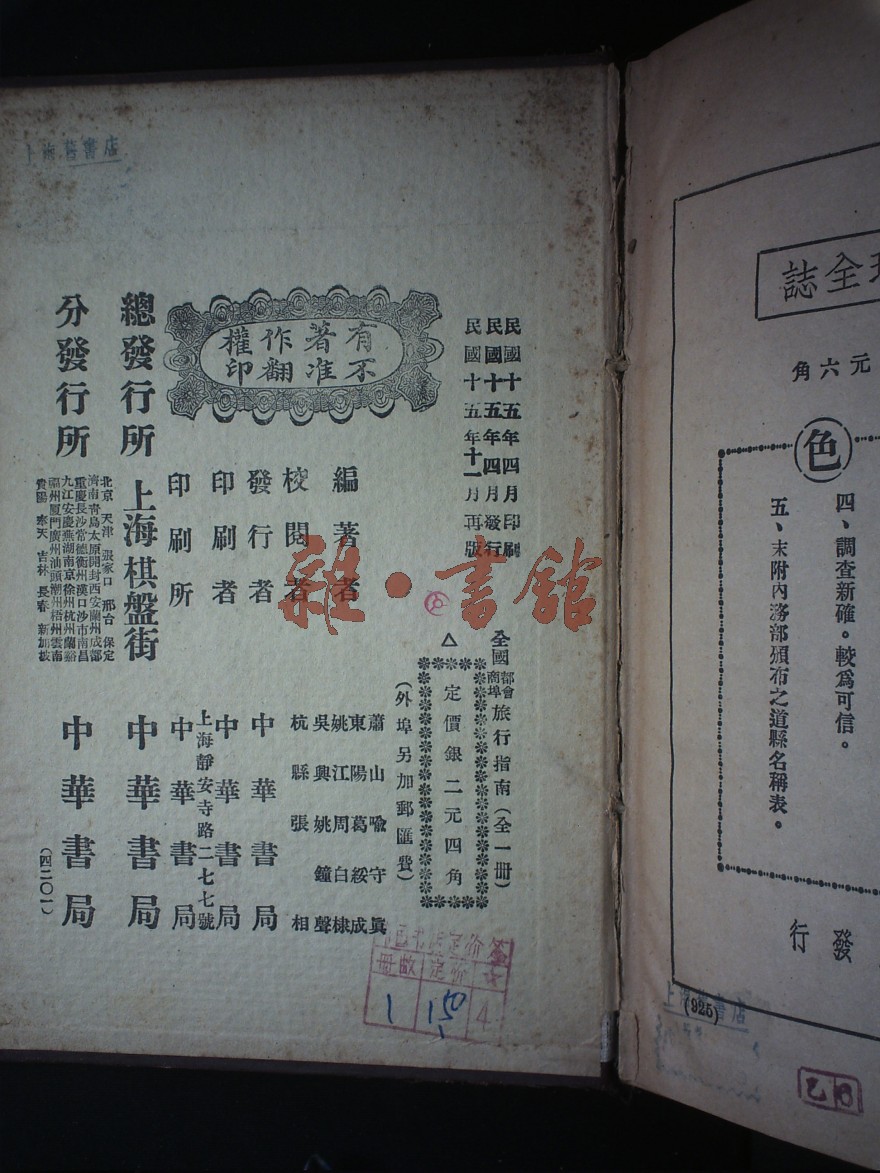 全誌
元六角
色
四、調查新確。較爲可信。
五、末附內務部頒布之道縣名稱表。
發行
(925)
上海舊書店
民國十五年四月印刷
民國十五年四月發行
民國十五年十一月再版
全國都會商埠旅行指南(全一册)
△定價銀二元四角
(外埠另加郵匯費)
有不著准作翻權印
編著者
蕭山喩守眞
東陽葛綏成
姚江周白棣
校閱者
吳興姚鐘聲
杭縣張相
發行者
中華書局
印刷者
中華書局
印刷所
上海靜安寺路二七七號
中華書局
總發行所
上海棋盤街
中華書局
分發行所
北京 天津 張家口 邢台 保定
濟南青島太原開封西安蘭州成都
重慶長沙常德衡州漢口沙市南昌
九江安慶蕪湖南京徐州杭州蘭谿
福州厦門廣州汕頭潮州梧州雲南
貴陽 奉天 吉林 長春 新加坡
中華書局
(四二〇一)
上海舊書店
雜·書館
册數
定價
1
150
4